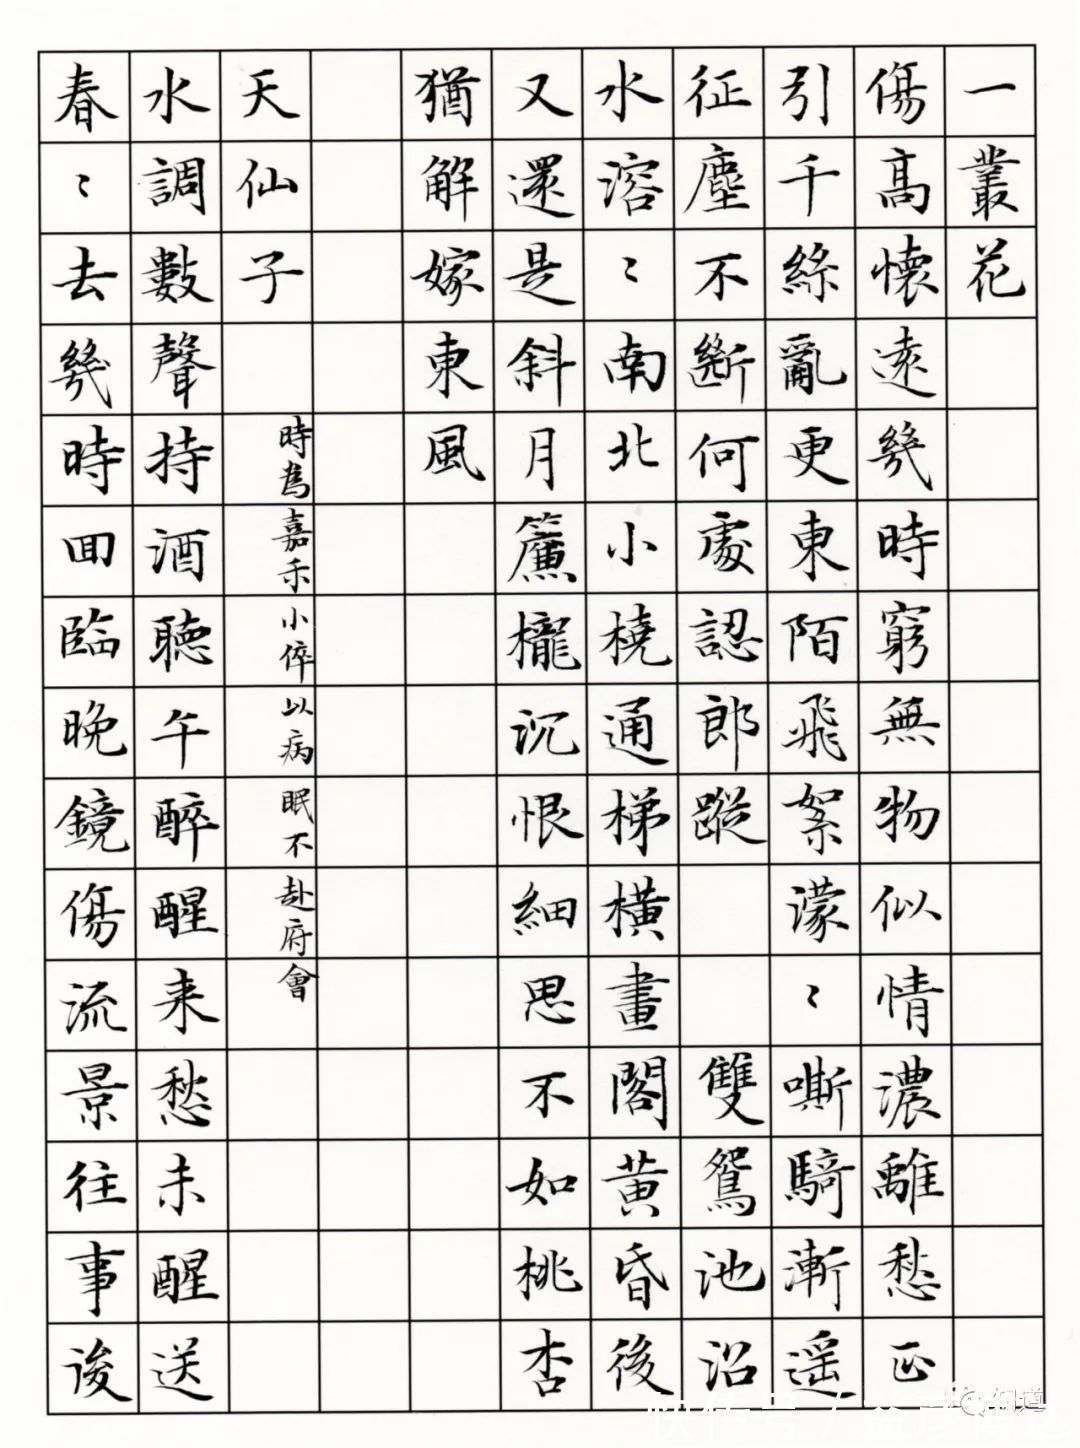 一叢花
傷高懷遠幾時窮無物似情濃離愁正
引千絲亂更東陌飛絮濛〻嘶騎漸遥
征塵不斷何處認郎蹤　　雙鴛池沼
水溶〻南北小橈通梯橫畫閣黃昏後
又還是斜月簾櫳沉恨細思不如桃杏
猶解嫁東風
天仙子 時為嘉禾小倅以病眠不赴府會
水調數聲持酒聽午醉醒来愁未醒送
春〻去幾時囬臨晚鏡傷流景往事後
快传号